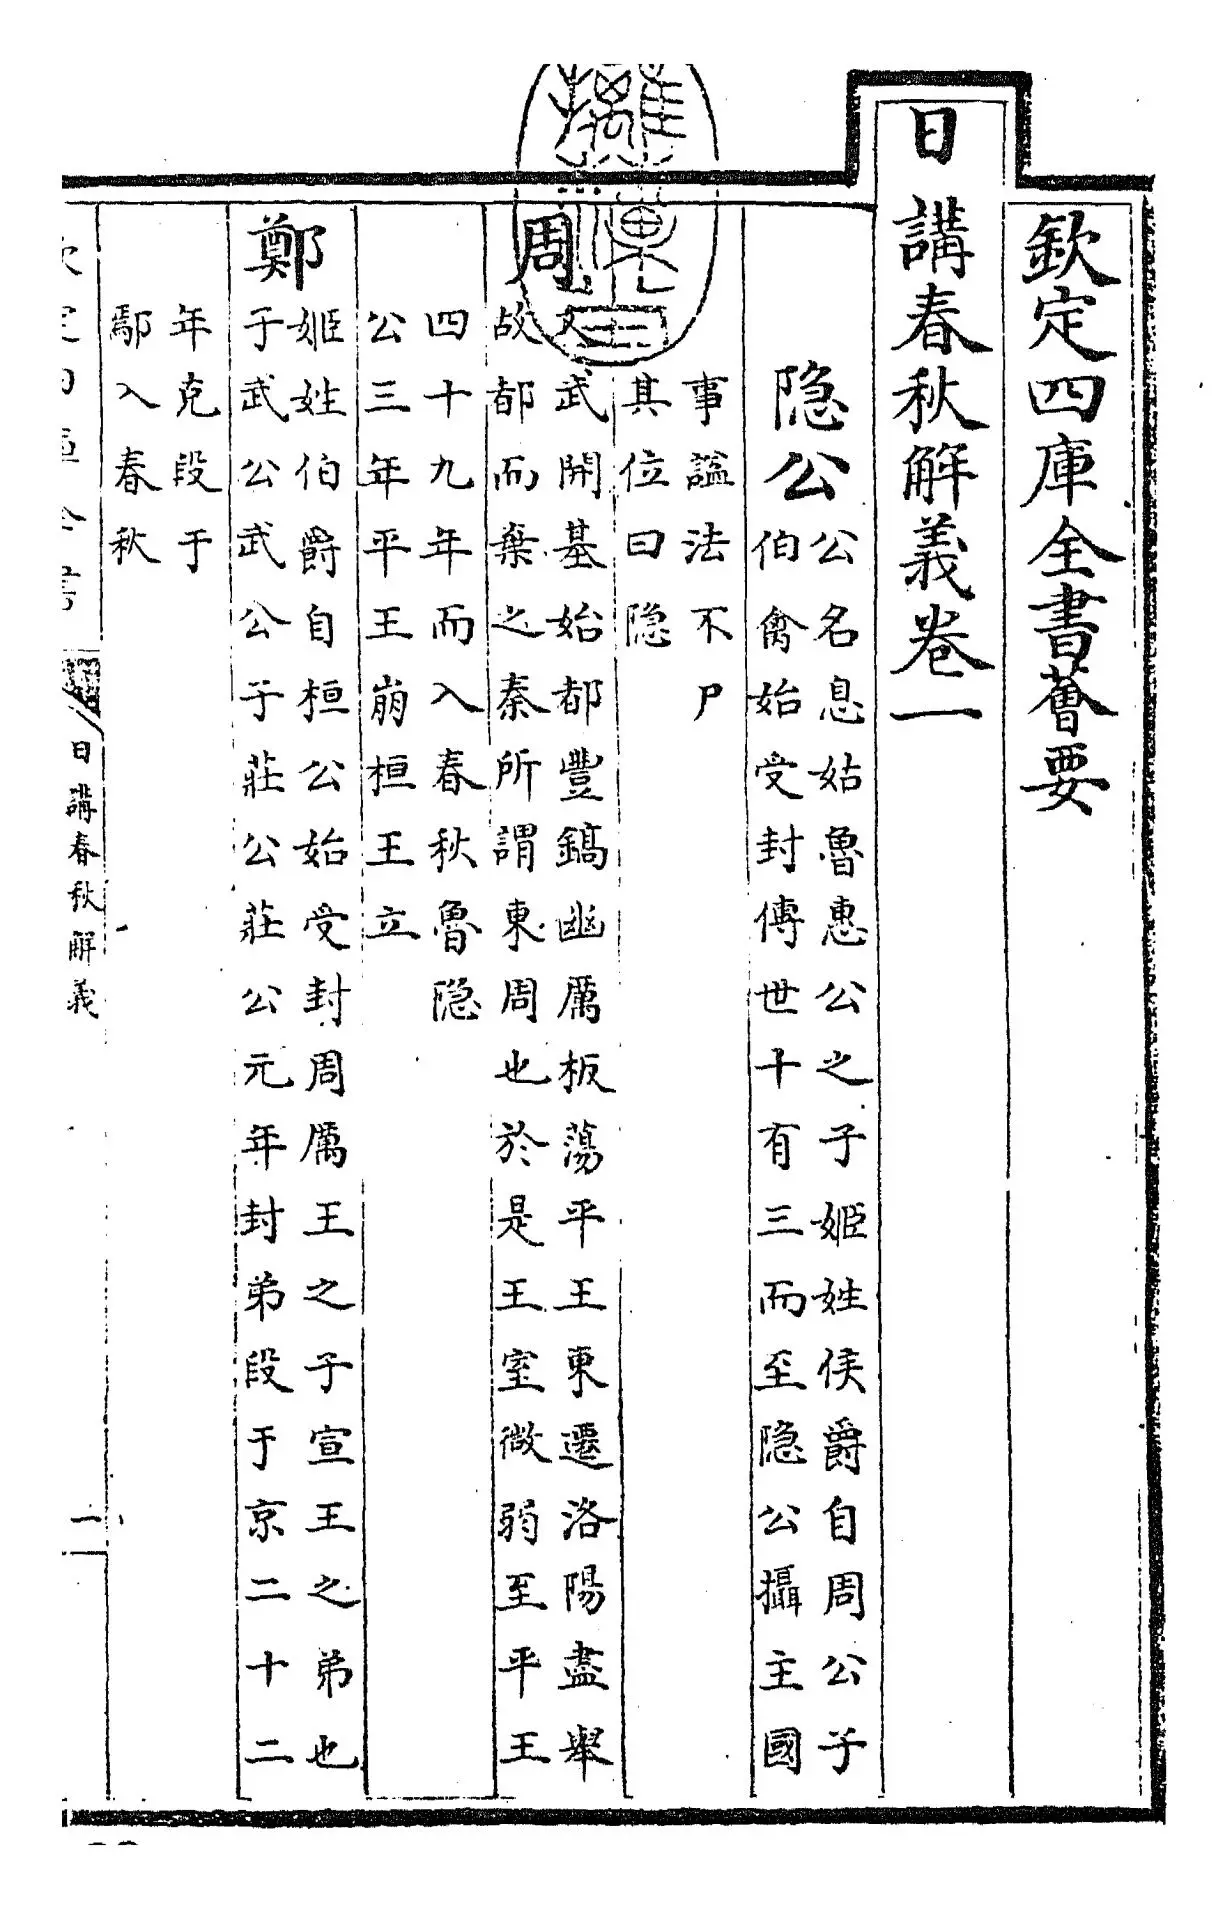 欽定四庫全書薈要
日講春秋解義卷一
隐公
公名息姑魯惠公之子姬姓侯爵自周公子
伯禽始受封傳世十有三而至隐公攝主國
事謚法不尸
其位曰隐
周
文武開基始都豐鎬幽厲板蕩平王東遷洛陽盡舉
故都而棄之秦所謂東周也於是王室微弱至平王
四十九年而入春秋魯隐
公三年平王崩桓王立
鄭
姬姓伯爵自桓公始受封周厲王之子宣王之弟也
子武公武公子莊公莊公元年封弟段于京二十二
年克段于
鄢入春秋
日講春秋解義
一